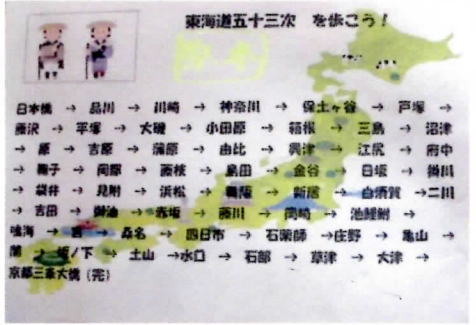 東海道五十三次 を歩こう!
日本橋 → 品川 → 川崎 → 神奈川 → 保土ヶ谷 → 戸塚 →
藤沢 → 平塚 → 大磯 → 小田原 → 箱根 → 三島 → 沼津
→ 原 → 吉原 → 蒲原 → 由比 → 興津 → 江尻 → 府中
→ 鞠子 → 岡部 → 藤枝 → 島田 → 金谷 → 日坂 → 掛川
→ 袋井 → 見附 → 浜松 → 舞阪 → 新居 → 白須賀 → 二川
→ 吉田 → 御油 → 赤坂 → 藤川 → 岡崎 → 池鯉鮒 →
鳴海 → 宮 → 桑名 → 四日市 → 石薬師 → 庄野 → 亀山 →
関 → 坂ノ下 → 土山 → 水口 → 石部 → 草津 → 大津 →
京都三条大橋(完)